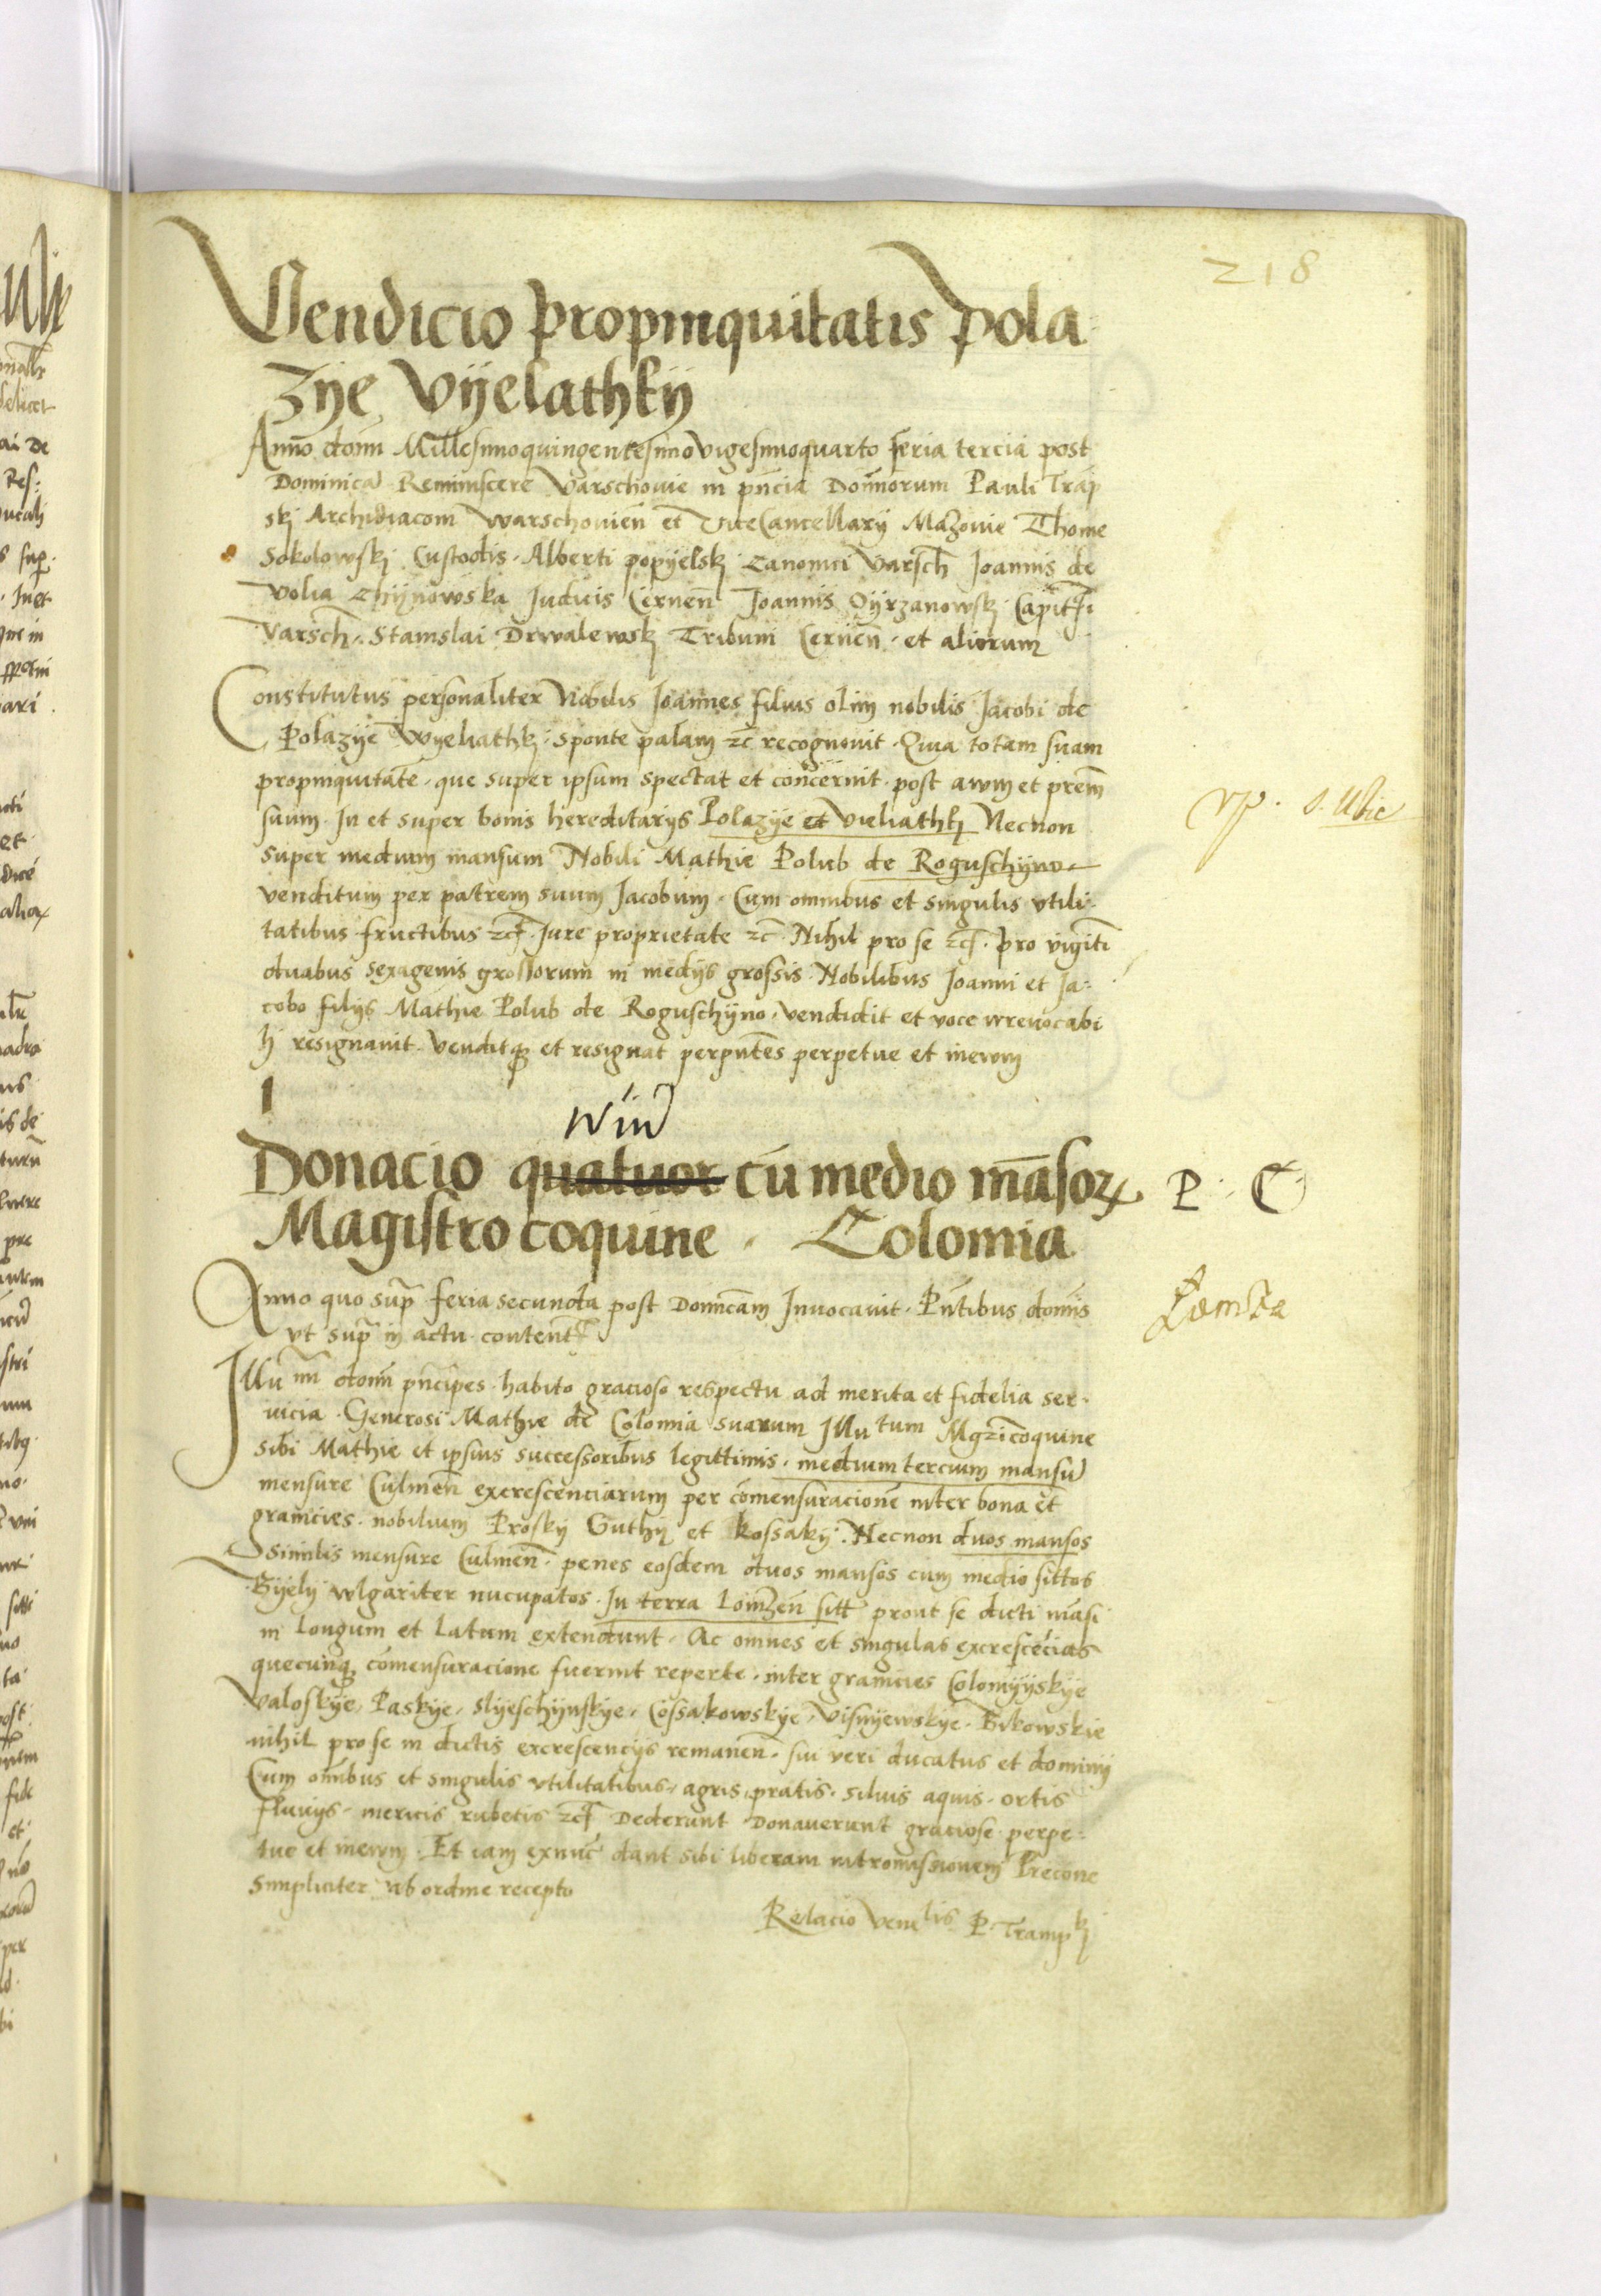 218
Vendicio propinquitatis Pola
zÿe Vÿelathkÿ
Anno domi Millesimoquingentesimovigesimoquarto feria tercia post
Dominica Reminiscere Varschovie in pñcia Domnorum Pauli Tramp
skj Archidiaconi Warschovien̄ et ViceCancellarÿ Mazovie Thome
Sokolowskj Custodis. Alberti popÿelskj Canonici Varsch Joannis de
Volia Chÿnowska Judicis Cernen̄ Joannis Oÿrzanowskj Capitī
Varsch. Stanislai Drwalewskj Tribuni Cernen̄. et aliorum
Constitutus personaliter Nobilis Joannes filius olim nobilis Jacobi de
Polazÿe Wÿeliathkj. sponte palam zc̄ recognovit. Quia totam suam
propinquitatē. que super ipsum spectat et concernit. post avum et prem̄
suum. In et super bonis hereditarÿs Polazÿe et Vieliathkj Necnon
super medium mansum Nobili Mathie Polub de Roguschÿno
venditum per patrem suum Jacobum. Cum omnibus et singulis utili-
tatibus fructibus zc̄. Jure proprietate zc̄. Nihil pro se zc̄. pro viginti
duabus sexagenis grossorum in medÿs grossis. Nobilibus Joanni et Ja-
cobo filÿs Mathie Polub de Roguschÿno. vendidit et voce irrevocabi
li resignavit. venditq3 et resignat perpn̄tes perpetue et inevum
vp. s. Ubic
Donacio quatuor cū medio māsoꝝ
Magistro coquine. Colomia
P. C
Lomza
Anno quo sup̄ feria secunda post Domicam Invocavit. Pn̄tibus domis
ut sup̄ in actu. content
Illu mi domi pn̄cipes. habito gracioso respectu ad merita et fidelia ser-
vicia. Generosi Mathie de Colomia suarum Illu tum Mgri coquine
sibi Mathie et ipsius successoribus legittimis. medium tercium mansū
mensure Culmen̄ excrescenciarum per comensuracionē inter bona et
granicies. nobilium Proskÿ Guthÿ et Kossakÿ. Necnon duos mansos
similis mensure Culmen̄. penes eosdem duos mansos cum medio sittos
Bÿelÿ wlgariter nucupatos. In terra Lomzen̄ sitt prout se dicti māsi
in longum et latum extendunt. Ac omnes et singulas excrescēcias
quecunq3 comensuracione fuerint reperte. inter granicies Colomÿÿskÿe
Valoskÿe, Paskÿe, Slÿeschÿnskÿe, Cossakowskÿe, Visnÿewskÿe. Bikowskie
nihil pro se in dictis excrescencÿs remanen̄. sui veri ducatus et dominÿ
Cum omibus et singulis utilitatibus, agris, pratis. silvis aquis. ortis
fluvÿs. mericis rubetis zc̄ Dederunt Donaverunt graciose perpe-
tue et inevum. Et iam exnūc dant sibi liberam intromissionem Precone
simpliciter ab ordine recepto
Relacio Vene lis P. Trampkj